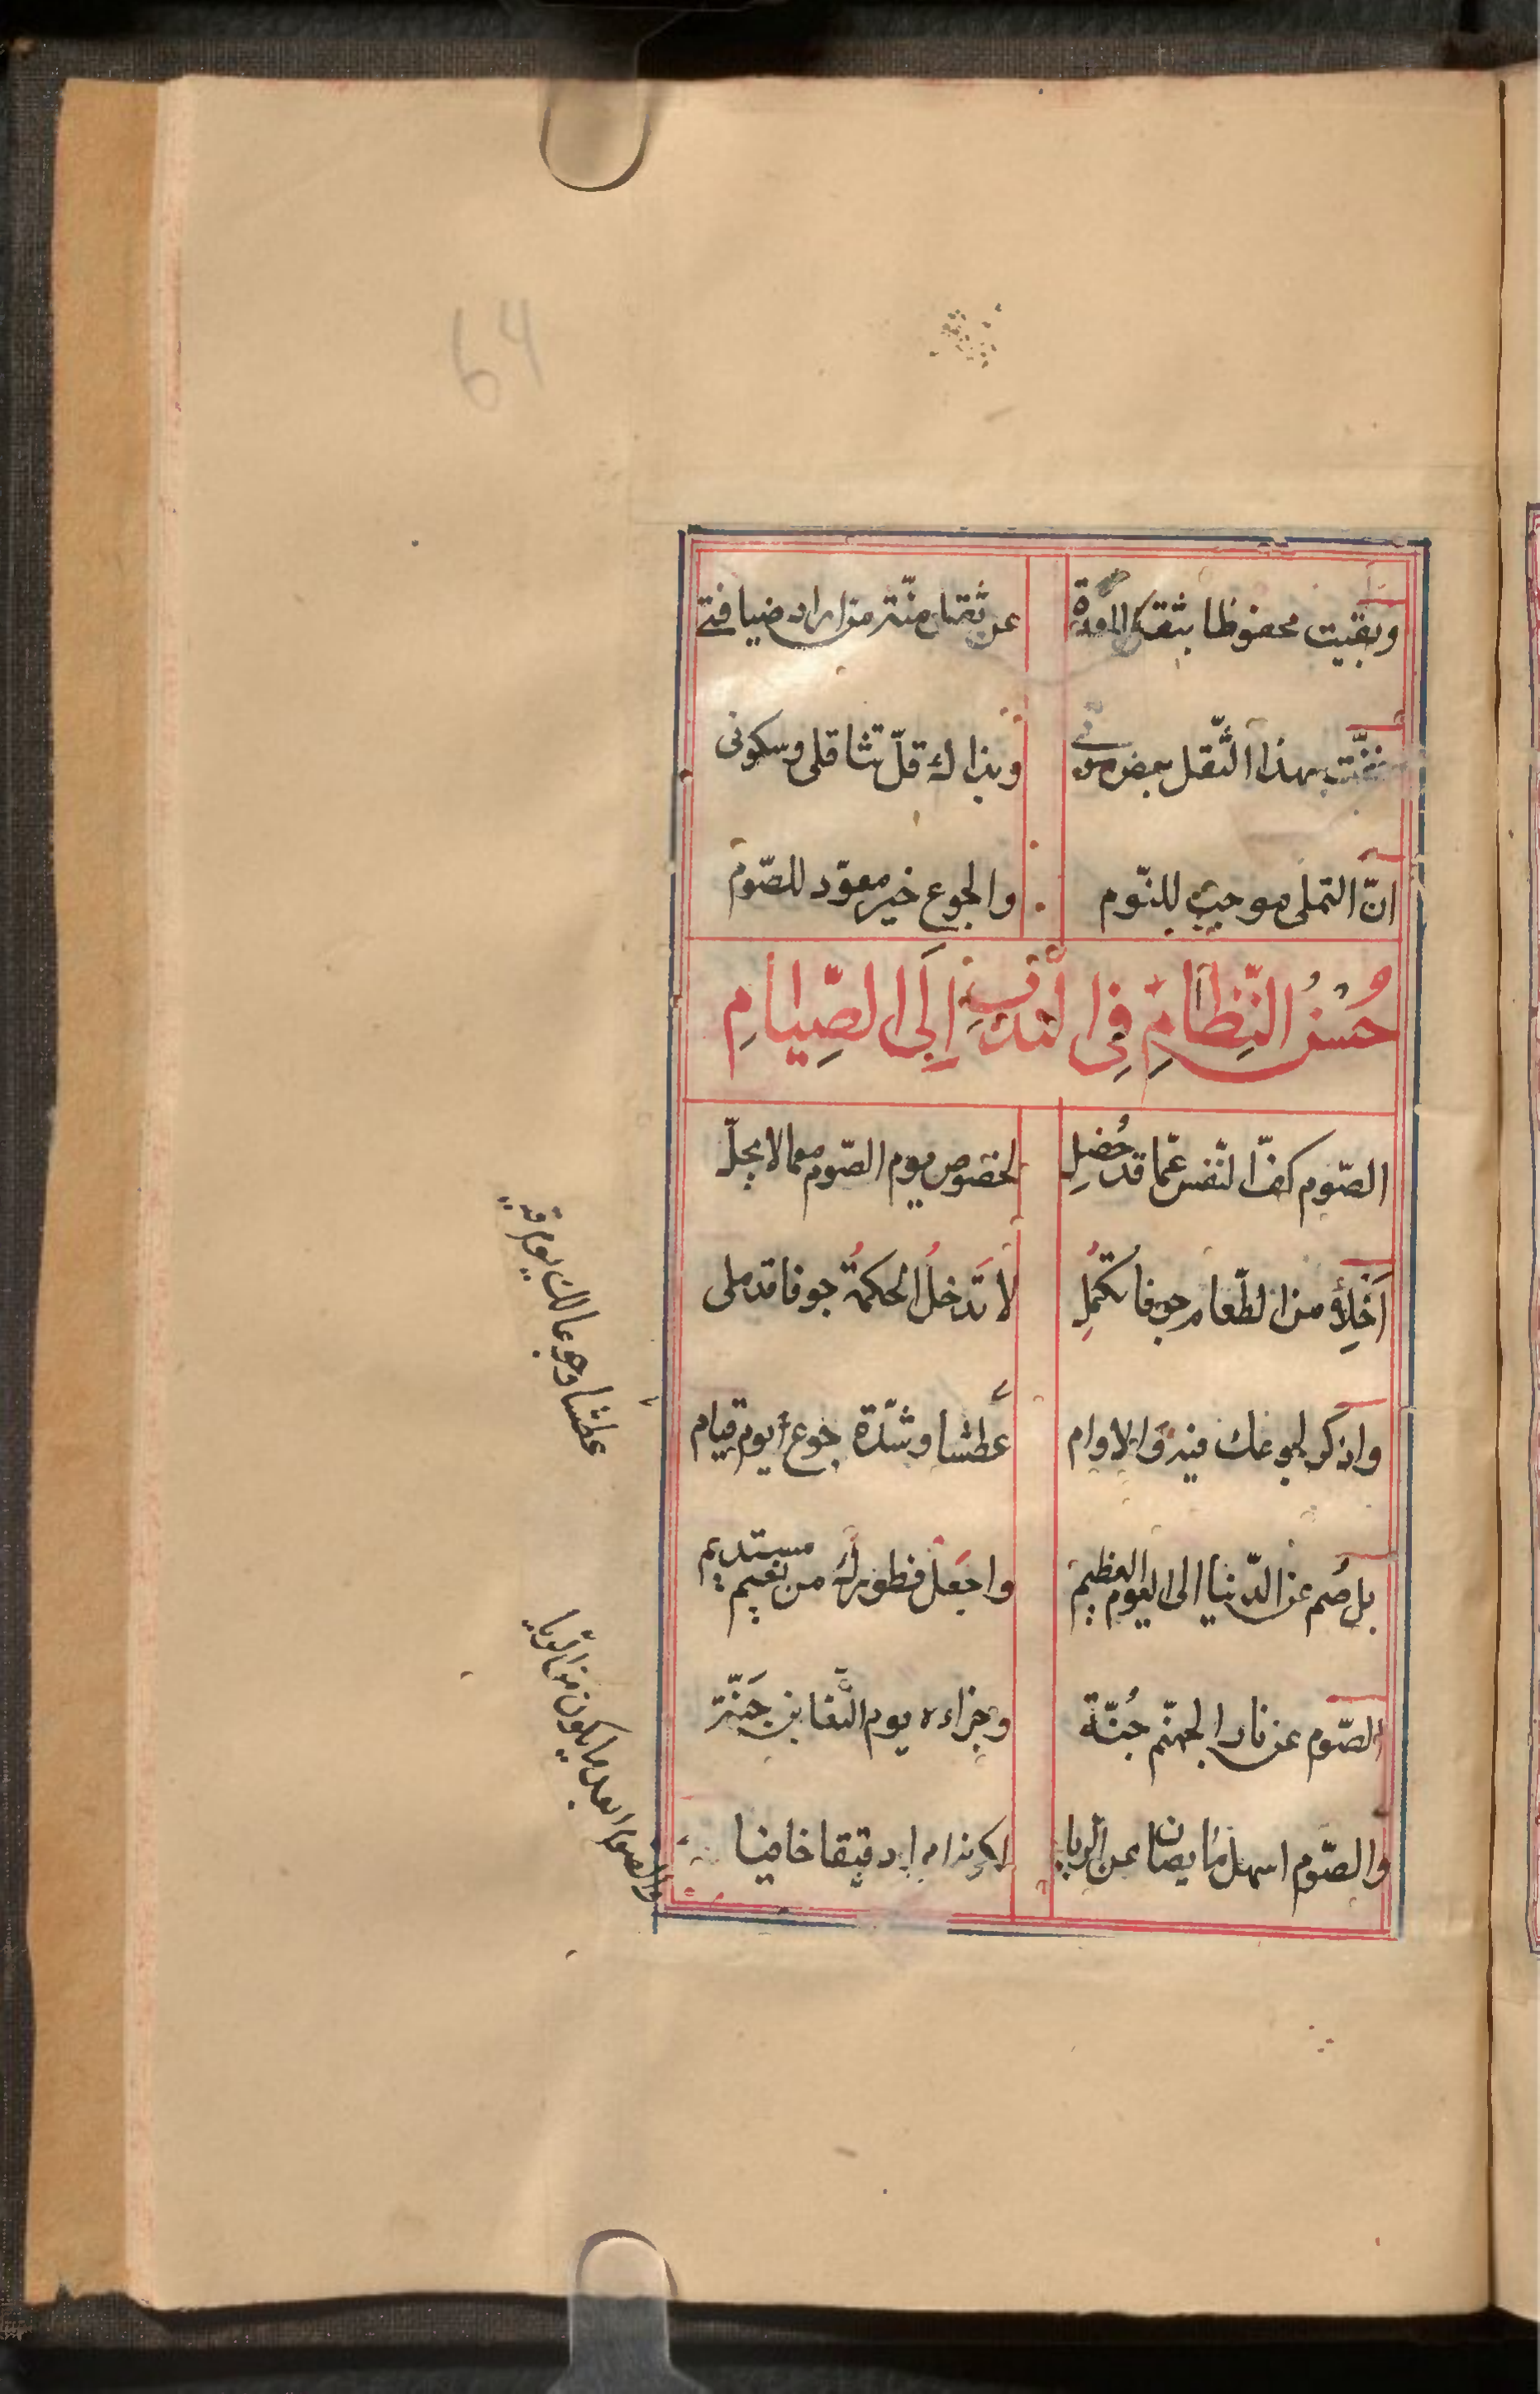 64
وبقيت محفوظا بثقل المعدة عن ثقل منّة من اراد ضيافتي
بهذا الثّقل بعض مؤنتي وبذاك قلّ تثاقلي وسكوني
انّ التملي موجب للنّوم والجوع خير معوّد للصّوم
حُسْنُ النِّظَامِ فِي النَّدْبِ اِلَى الصِّيَامِ
الصّوم كفّ النّفس عمّا قد حُضِل لخصوص يوم الصّوم مما لا يحلّ
اَخْلِأ من الطّعام جوفا تكمُلِ لا تَدخلُ الحكمةُ جوفا قد ملى
واذكر لجوعك فيه والاوام عطشا وشدّة جوع يوم قيام
بل صُم عن الدّنيا الى اليوم العظيم واجعل فطورك من نعيم مستديم
الصّوم عن نار الجهنّم جُنّة وجزاءه يوم التّغابن جَنّة
والصّوم اسهل ما يصان عن الريا دقيقا خافيا
عطشا وجوعا لك يوم
والصوم ابعد ما يكون من الريا